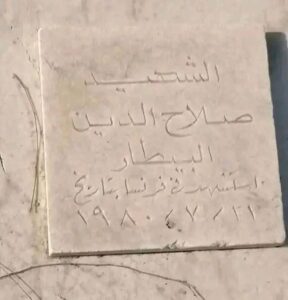 الشهيد
صلاح الدين
البيطار
استشهد في فرنسا بتاريخ
٢١ / ٧ / ١٩٨٠